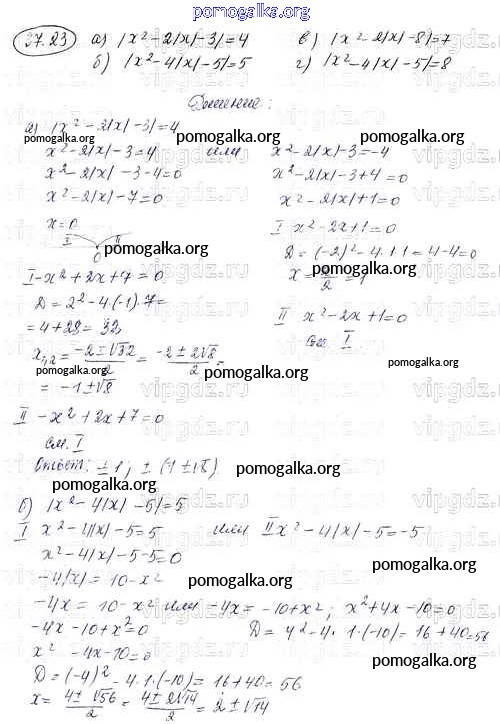 pomogalka.org
37.23 а) |x² - 2|x| - 3| = 4 в) |x² - 2|x| - 8| = 7
б) |x² - 4|x| - 5| = 5 г) |x² - 4|x| - 5| = 8
Решение:
а) |x² - 2|x| - 3| = 4
pomogalka.org pomogalka.org pomogalka.org
x² - 2|x| - 3 = 4 или x² - 2|x| - 3 = -4
x² - 2|x| - 3 - 4 = 0 x² - 2|x| - 3 + 4 = 0
x² - 2|x| - 7 = 0 x² - 2|x| + 1 = 0
x = 0 I x² - 2x + 1 = 0
I II
0 pomogalka.org D = (-2)² - 4·1·1 = 4 - 4 = 0
I -x² + 2x + 7 = 0 x = 2/2 = 1
pomogalka.org
D = 2² - 4·(-1)·7 =
= 4 + 28 = 32 II x² - 2x + 1 = 0
pomogalka.org
x₁,₂ = (-2 ± √32)/2 = (-2 ± 2√8)/2 = см. I
pomogalka.org pomogalka.org
= -1 ± √8
II -x² + 2x + 7 = 0
см. I
Ответ: ± 1; ± (1 ± √8).
pomogalka.org
б) |x² - 4|x| - 5| = 5
pomogalka.org
I x² - 4|x| - 5 = 5 или II x² - 4|x| - 5 = -5
x² - 4|x| - 5 - 5 = 0
pomogalka.org
-4|x| = 10 - x²
pomogalka.org
-4x = 10 - x² или -4x = -10 + x²; x² + 4x - 10 = 0
-4x - 10 + x² = 0 D = 4² - 4·1·(-10) = 16 + 40 = 56
x² - 4x - 10 = 0
pomogalka.org
D = (-4)² - 4·1·(-10) = 16 + 40 = 56
x = (4 ± √56)/2 = (4 ± 2√14)/2 = 2 ± √14
pomogalka.org